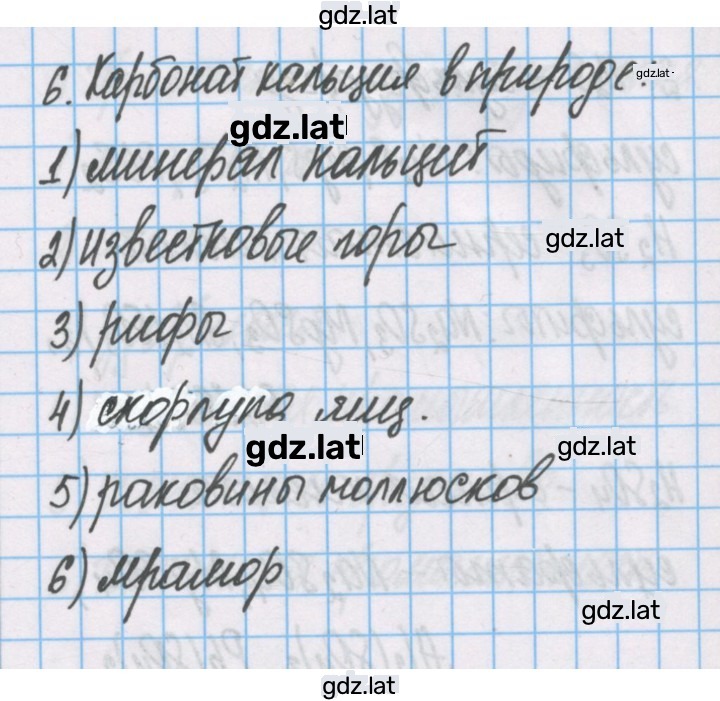 gdz.lat
6. Карбонат кальция в природе:
gdz.lat
gdz.lat
1) минерал кальцит
2) известковые горы
gdz.lat
3) рифы
4) скорлупа яиц.
gdz.lat
gdz.lat
5) раковины моллюсков
6) мрамор
gdz.lat
gdz.lat